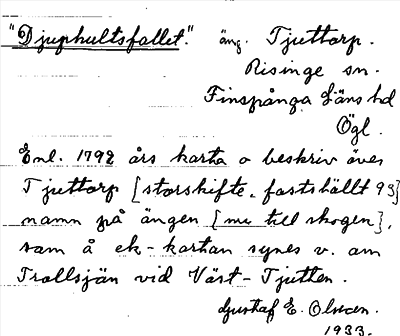 "Djuphultsfallet." äng. Tjuttorp.
Risinge sn.
Finspånga Läns hd
Ögl.
Enl. 1792 års karta o beskriv över
Tjuttorp [storskifte, fastställt 93]
namn på ängen [nu till skogen],
som å ek-kartan synes v. om
Trollsjön vid Väst-Tjutten.
Gustaf E. Olsson.
1933.